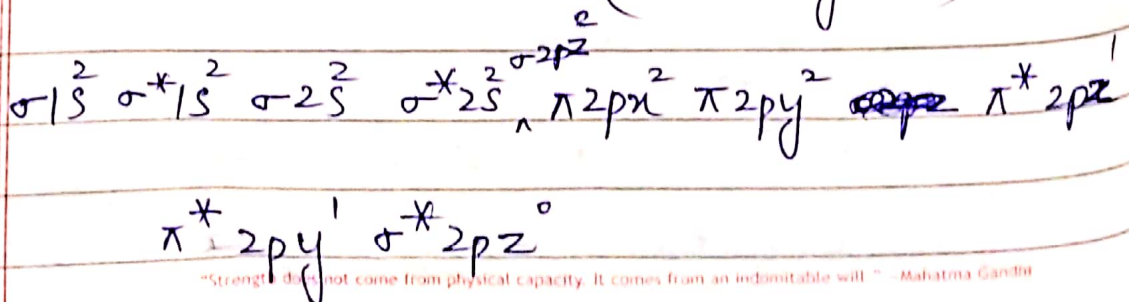 σ1s² σ*1s² σ2s² σ*2s² σ2pz² π2px² π2py² π*2pz¹
π*2py¹ σ*2pz⁰
"Strength does not come from physical capacity. It comes from an indomitable will" -Mahatma Gandhi